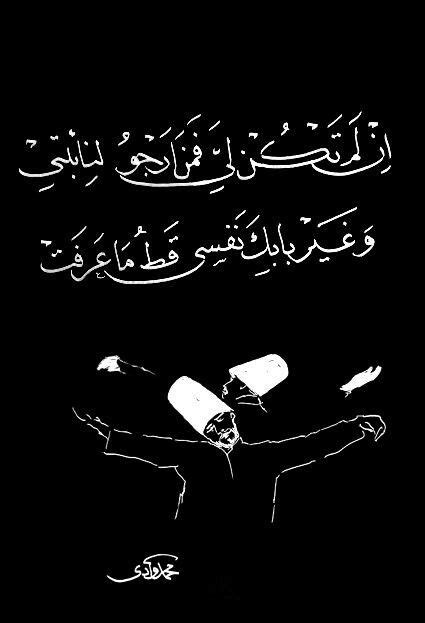 إِنْ لَمْ تَكُنْ لِيَّ فَمَنْ أَرْجُو لِنائبَتي
وَغَيْر بابِكَ نَفْسِي قَط مَا عَرَفَتْ